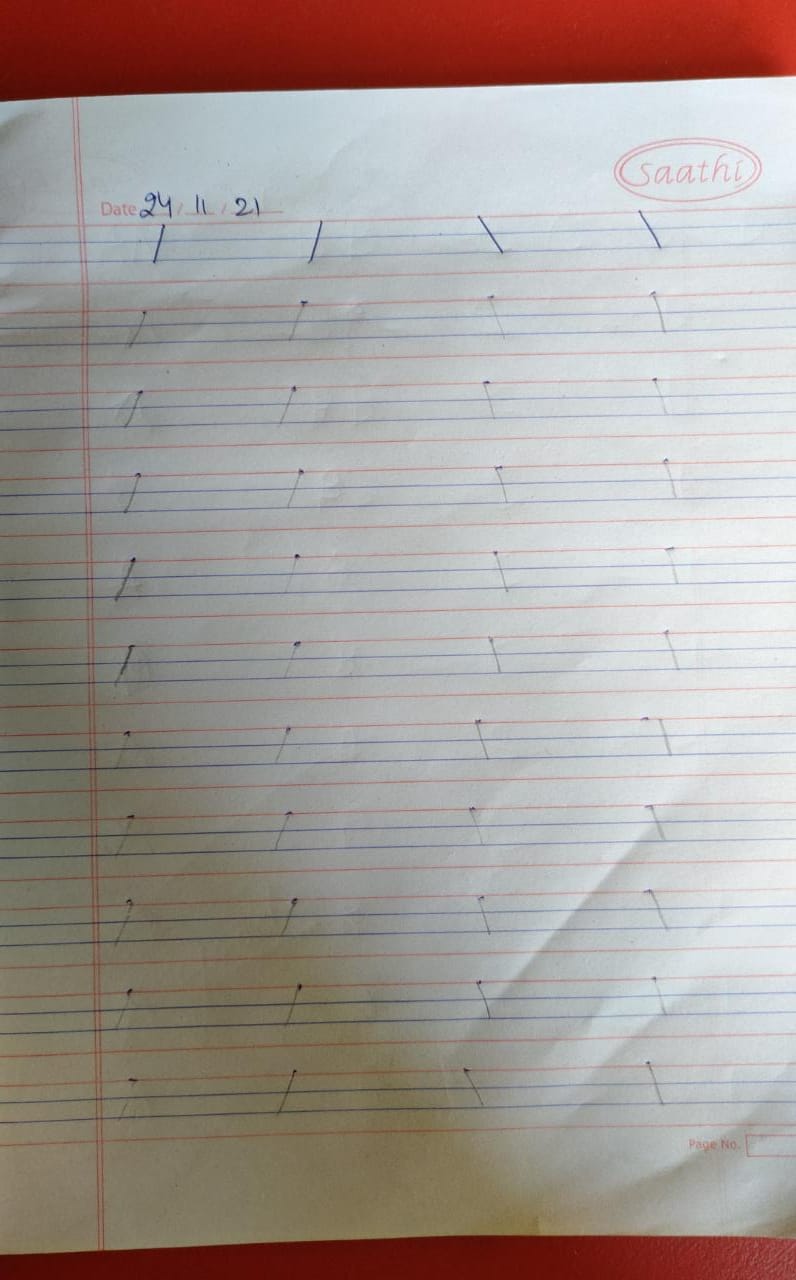 saathi
Date 24 / 11 / 21
/ / \ \
/ / \ \
/ / \ \
/ / \ \
/ / \ \
/ / \ \
/ / \ \
/ / \ \
/ / \ \
/ / \ \
/ / \ \
Page No.